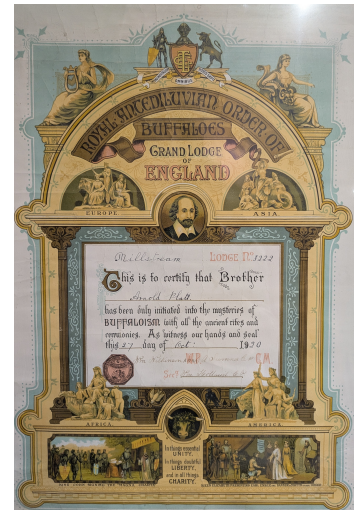 ROYAL ANTEDILUVIAN ORDER OF
BUFFALOES
GRAND LODGE
OF
ENGLAND
EUROPE
ASIA
LODGE No. 1222
This is to certify that Brother
Arnold Platt
has been duly initiated into the mysteries of
BUFFALOISM with all the ancient rites and
ceremonies. As witness our hands and seal
this 27 day of Oct 1930
C.M.
AFRICA
AMERICA
In things essential
UNITY,
In things doubtful
LIBERTY,
and in all things
CHARITY.